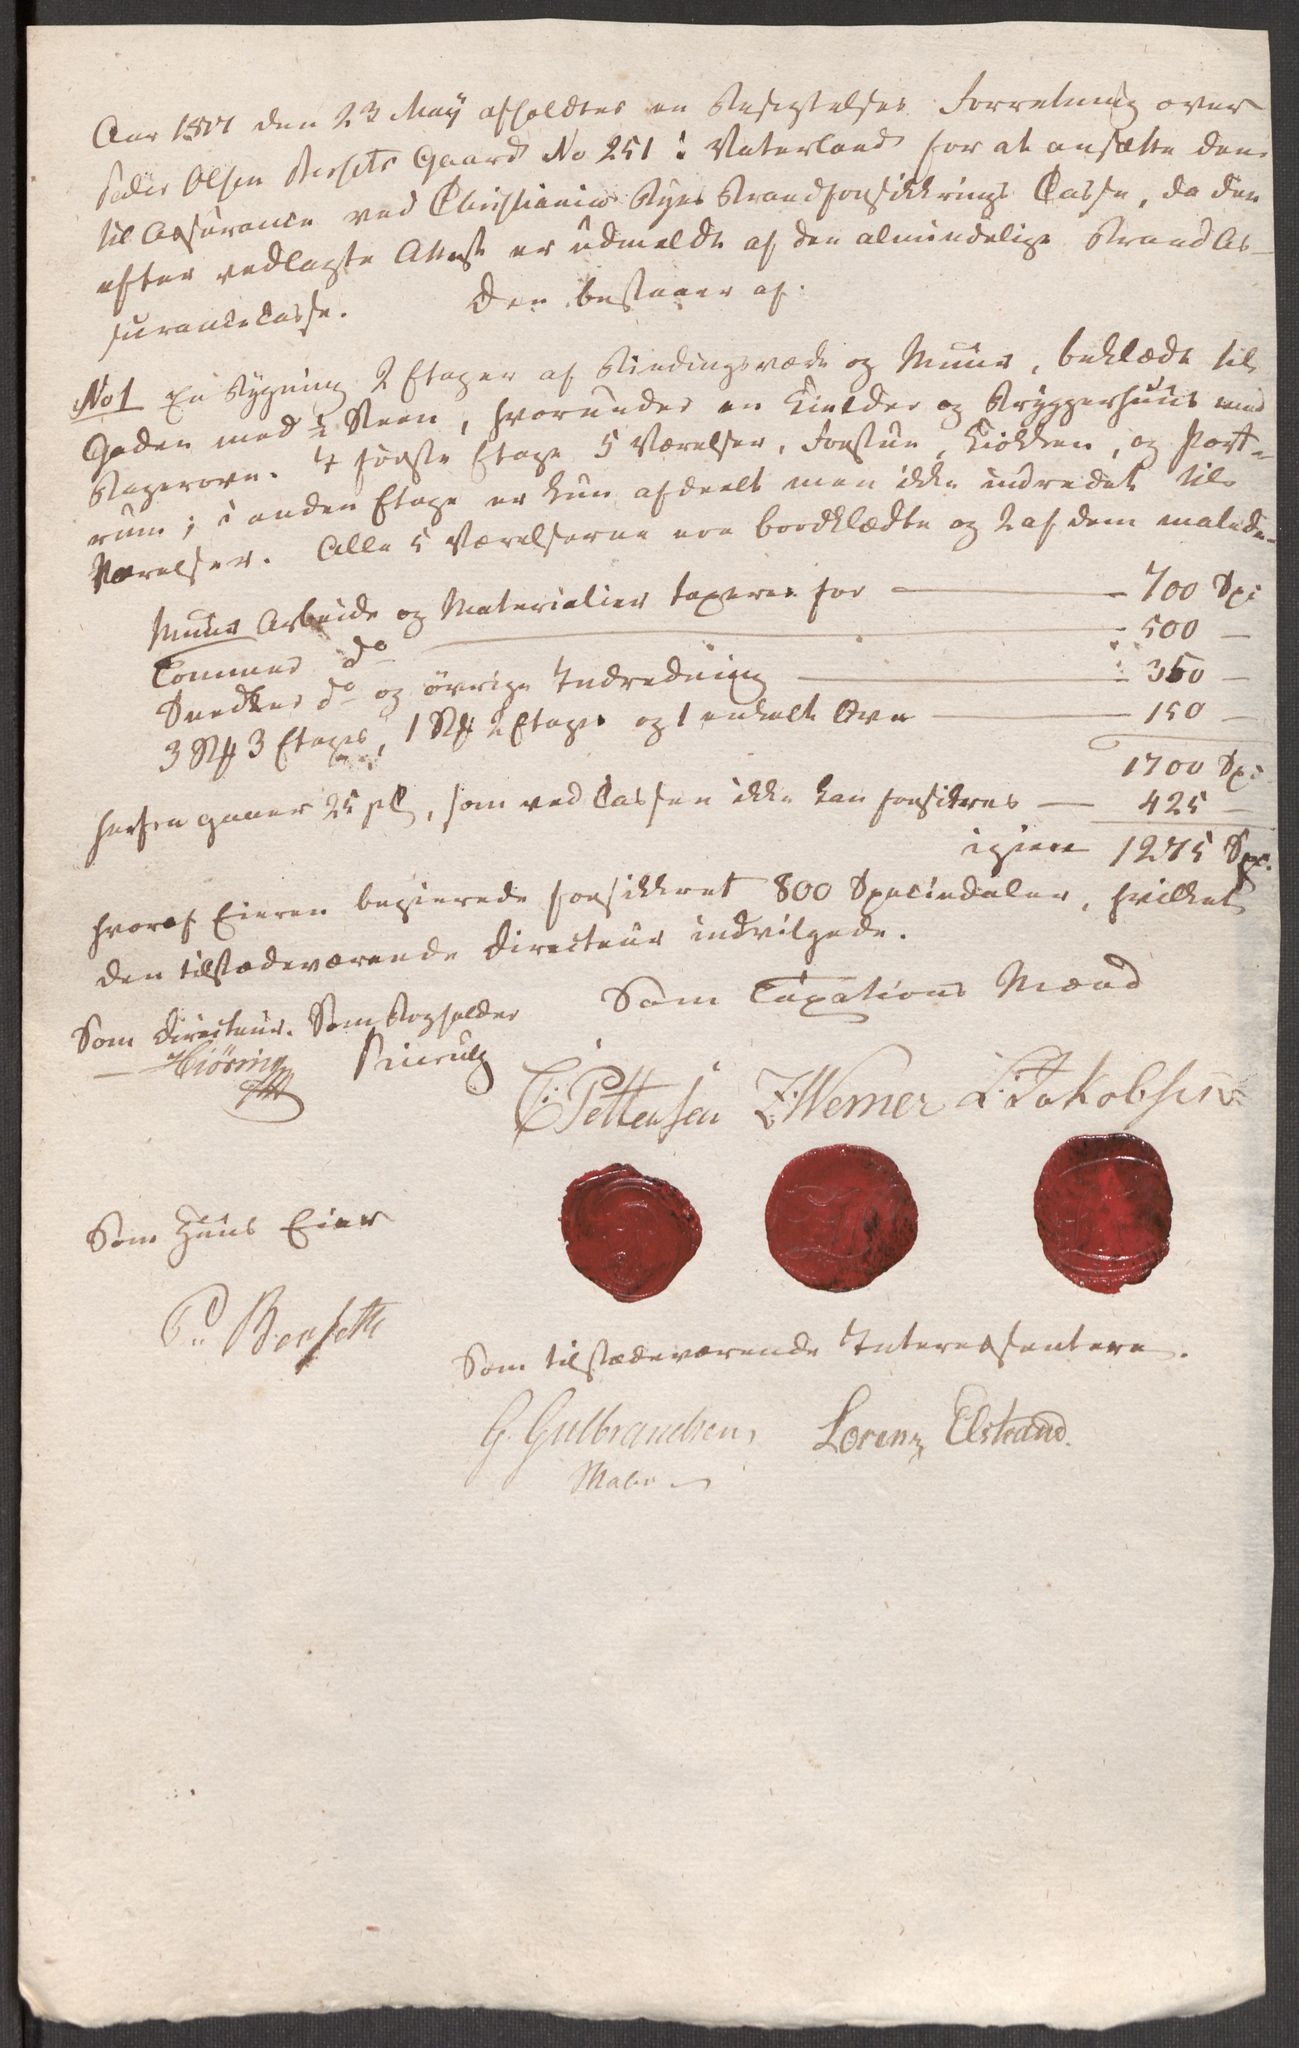 Aar 1817 den 23 May afholdtes en Besigtelses Forretning over
Peder Olsen Bersets Gaard No 251 i Vaterland for at ansætte den
til Assurance ved Christiania Byes Brandforsikkrings Casse, da den
efter vedlagte Attest er udmeldt af den almindelige Brand As-
surance Casse. Den bestaaer af.
No 1 En Bygning 2 Etager af Bindingsværk og Muur, beklædt til
Gaden med ½ Steen, hvorunder en Kielder og Bryggerhuus med
Bagerovn. I første Etage 5 Værelser, Forstue, Kiøkken, og Port-
rum; i anden Etage er kun afdeelt men ikke indredet til
Værelser. Alle 5 Værelserne ere bordklædte og 2 af dem malede.
Muur Arbeide og Materialier taxeres for — 700 Spc
Tømmer do — 500 —
Snedker do og øvrige Indredning — 350 —
3 Stk 3 Etages, 1 Stk 2 Etages og 1 enkelt Ovn — 150 —
1700 Spc
Herfra gaaer 25 pC, som ved Cassen ikke kan forsikres — 425 —
igien 1275 Spc.
hvoraf Eieren begierede forsikkret 800 Speciedaler, hvilket
den tilstædeværende Directeur indvilgede.
Som Taxations Mænd
Som Directeur. Som Bogholder
Hiörring
C: Pettersen Z. Werner L. Jakobsen
Som Huus Eier
P. Bersette
Som tilstædeværende Interessentere.
G. Gulbrandsen, Lorenz Elstrand.
Maler